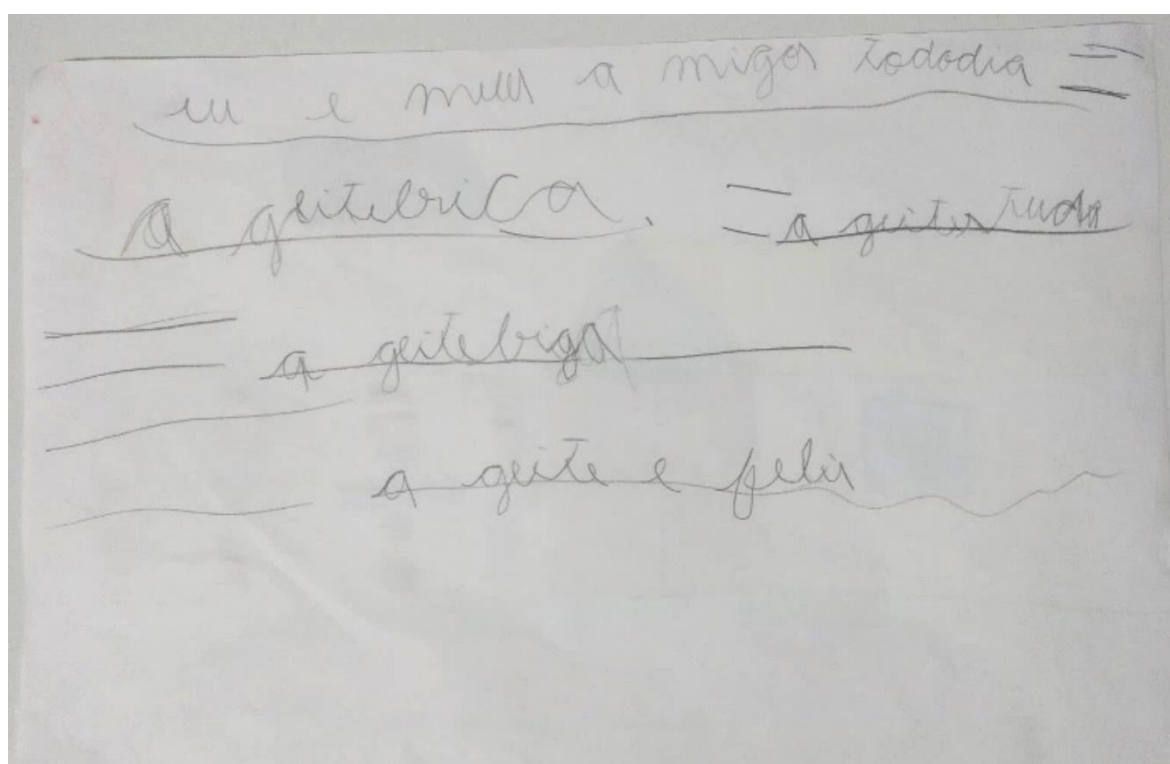 eu e meus a migos tododia
a geitebrica. a geites tuda
a geitebiga
a geite e felis